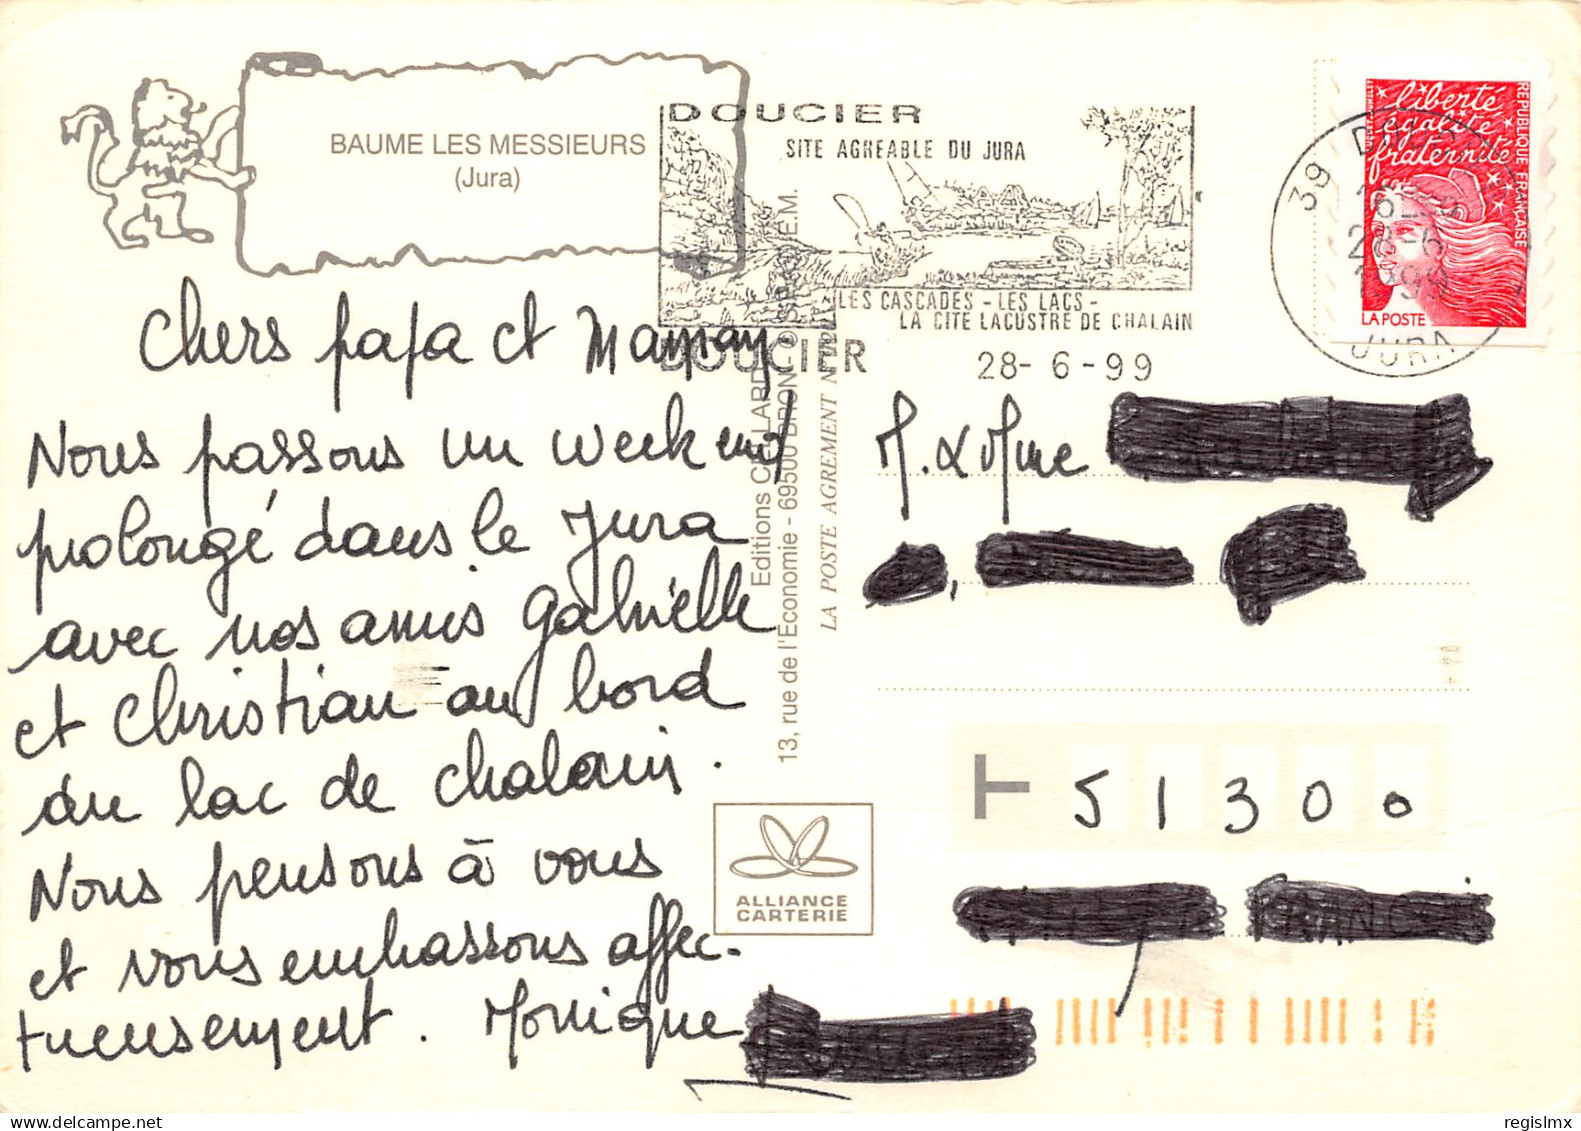 BAUME LES MESSIEURS
(Jura)
DOUCIER
SITE AGREABLE DU JURA
LES CASCADES - LES LACS -
LA CITE LACUSTRE DE CHALAIN
DOUCIER
28- 6 -99
39
28-6
1999
JURA
liberté
égalité
fraternité
REPUBLIQUE FRANÇAISE
LA POSTE
Chers papa et Maman
Nous passons un week end
prolongé dans le Jura
avec nos amis Gabrielle
et Christian au bord
du lac de Chalain.
Nous pensons à vous
et vous embrassons affec-
tueusement. Monique
Editions
13, rue de l'Economie - 69500 BRON -
LA POSTE AGREMENT N°
M. & Mme
T 51300
ALLIANCE
CARTERIE
regislmx
delcampe.net